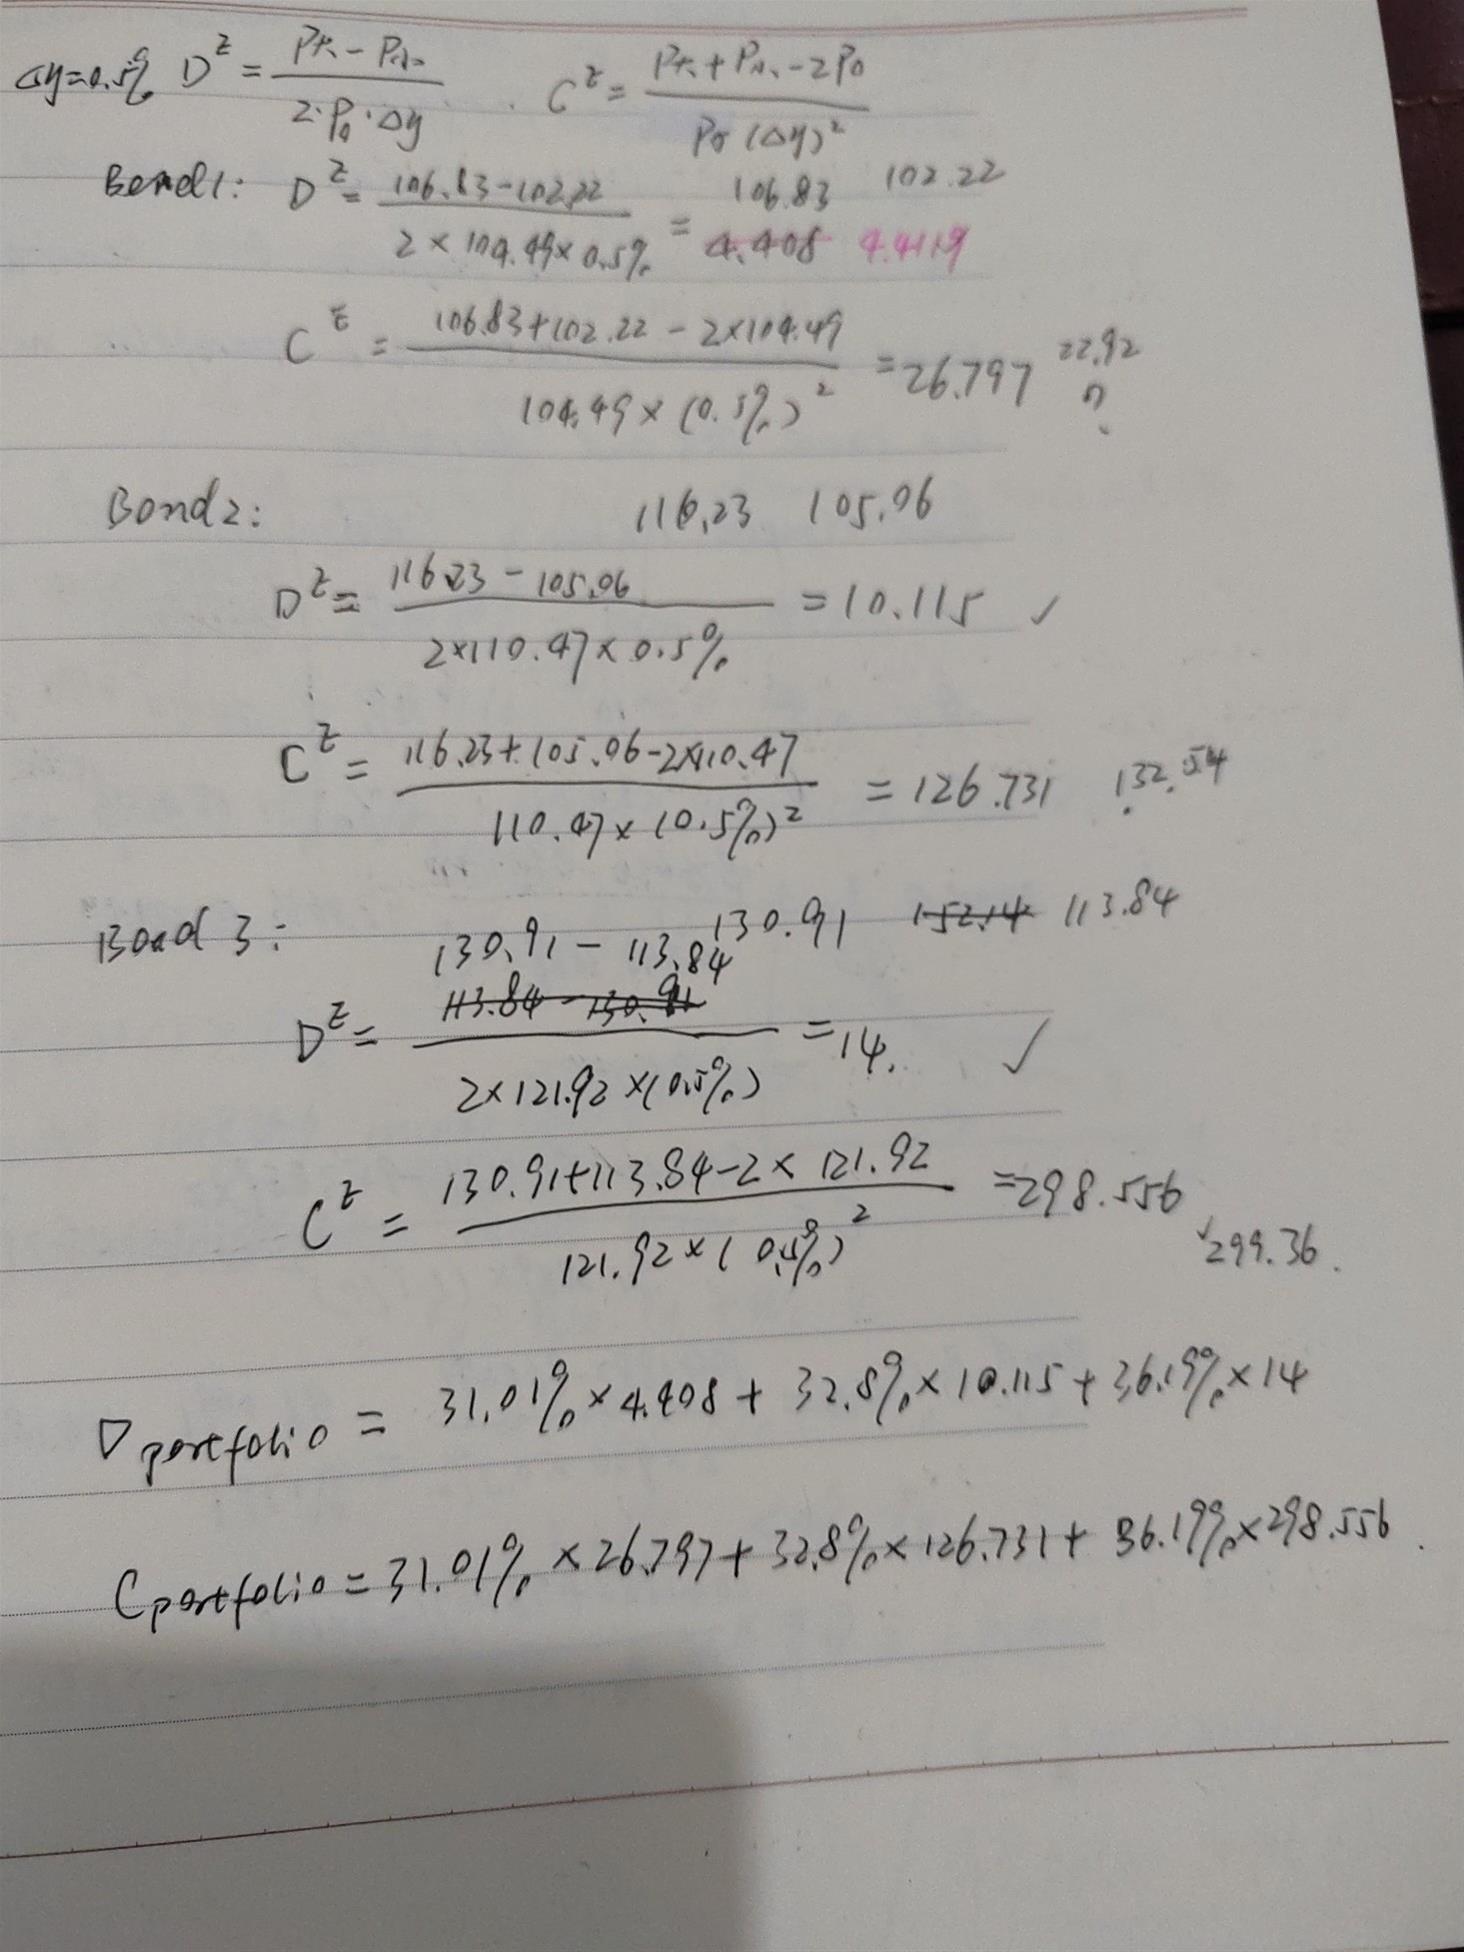 Δy=0.5% D^E = (P+ - P-) / (2·P0·Δy) . C^E = (P+ + P- - 2P0) / (P0 (Δy)^2)
106.83 102.22
Bond1: D^E = (106.83-102.22) / (2×104.49×0.5%) = 4.408 4.4119
C^E = (106.83+102.22-2×104.49) / (104.49×(0.5%)^2) = 26.797 22.92 ?
Bond2: 116.23 105.06
D^E = (116.23-105.06) / (2×110.47×0.5%) = 10.115 ✓
C^E = (116.23+105.06-2×110.47) / (110.47×(0.5%)^2) = 126.731 132.54
Bond 3: 130.91 152.14 113.84
130.91 - 113.84
D^E = (113.84-130.91) / (2×121.92×(0.5%)) = 14. ✓
C^E = (130.91+113.84-2×121.92) / (121.92×(0.5%)^2) = 298.556
299.36.
D portfolio = 31.01%×4.408+32.8%×10.115+36.19%×14
C portfolio = 31.01%×26.797+32.8%×126.731+36.19%×298.556.